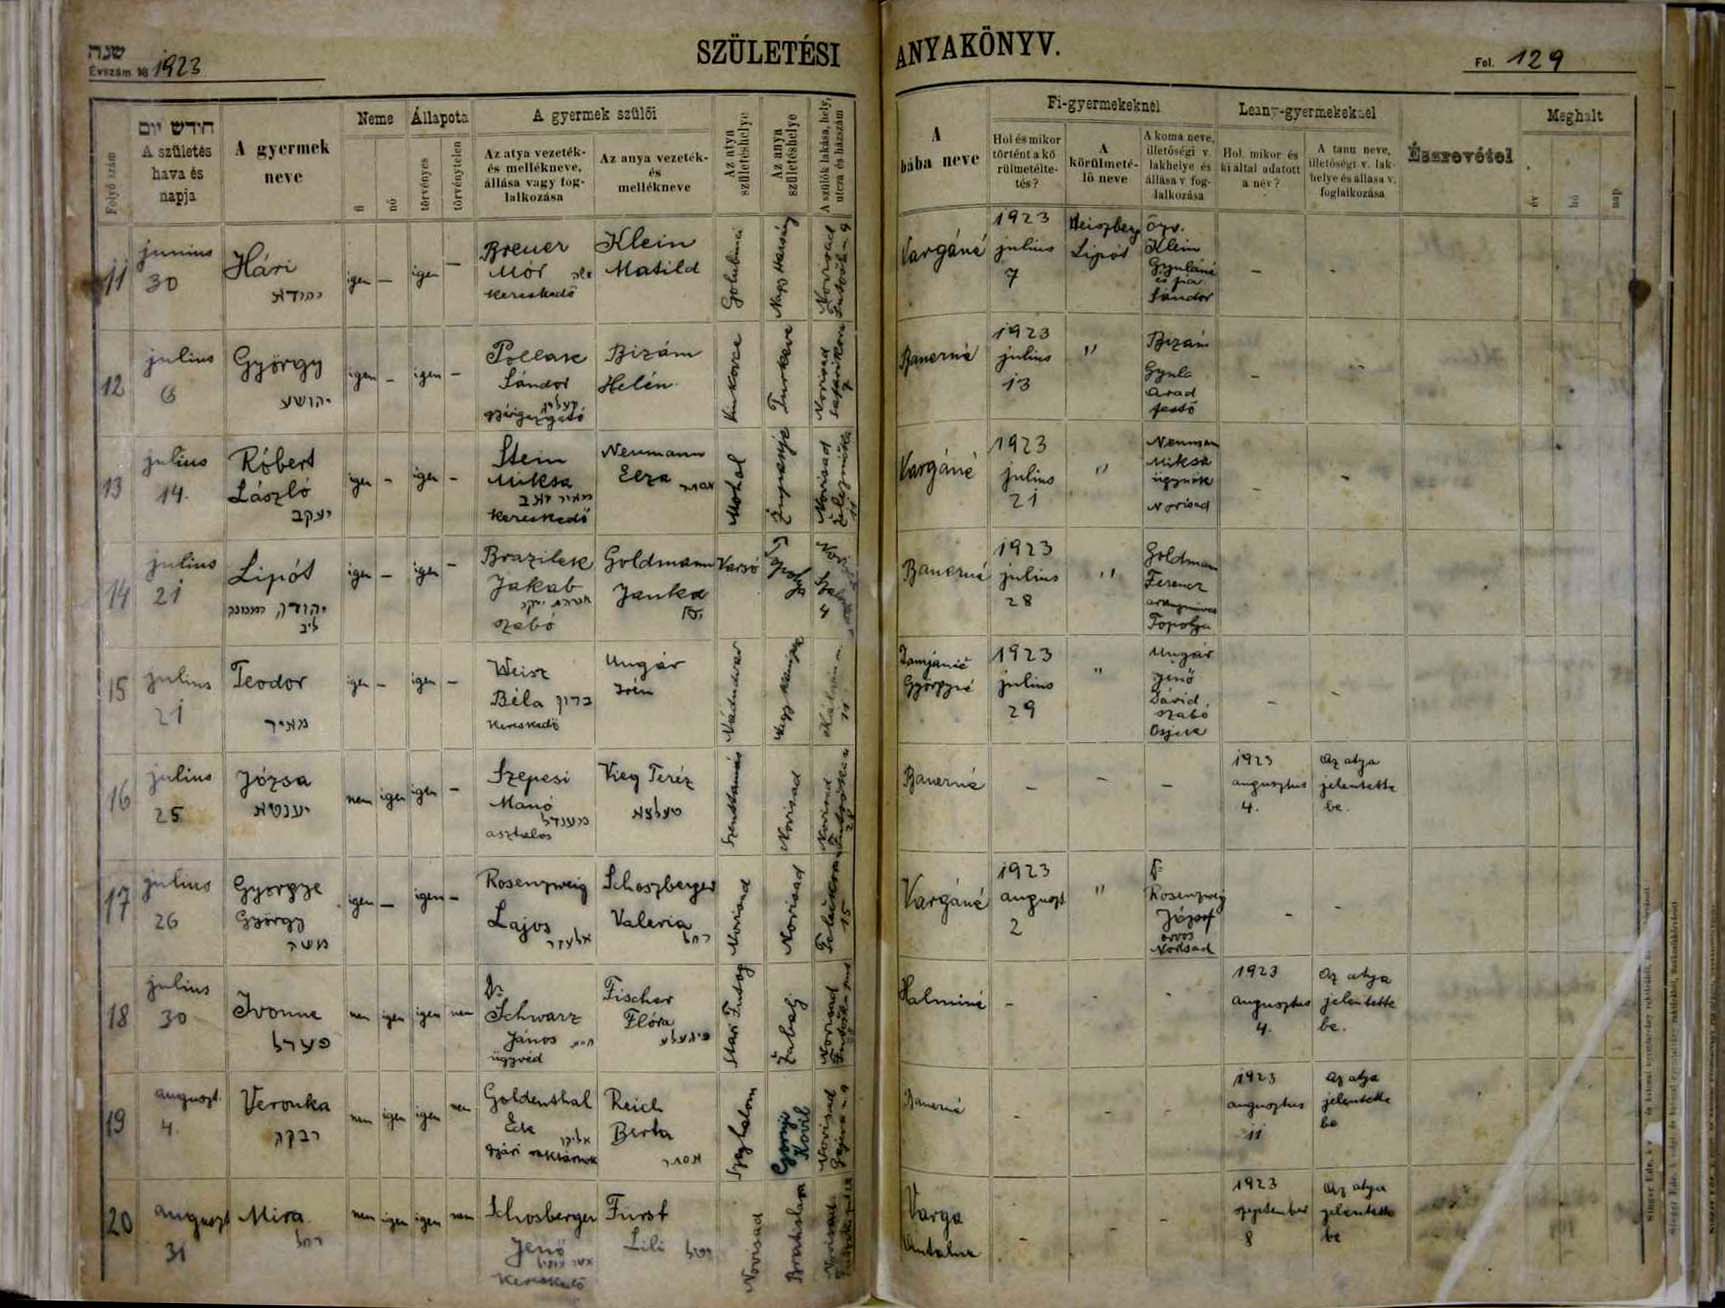 שנה
Évszám 18 1923
SZÜLETÉSI ANYAKÖNYV.
Fol. 129
Folyó szám
חידש יום
A születés hava és napja
A gyermek neve
Neme
fi
nő
Állapota
törvényes
törvénytelen
A gyermek szülői
Az atya vezeték- és mellékneve, állása vagy foglalkozása
Az anya vezeték- és mellékneve
Az atya születéshelye
Az anya születéshelye
A szülők lakása, hely, utcza és házszám
A bába neve
Fi-gyermekeknél
Hol és mikor történt a körülmetéltetés?
A körülmetélő neve
A koma neve, illetőségi v. lakhelye és állása v. foglalkozása
Leány-gyermekeknél
Hol, mikor és ki által adatott a név?
A tanu neve, illetőségi v. lakhelye és állása v. foglalkozása
Észrevétel
Meghalt
év
hó
nap
11
junius
30
Hári
יהודא
igen
–
igen
–
Breuer
Mór
kereskedő
Klein
Matild
Novisad
Vargáné
1923
julius
7
Weiszberg
Lipót
özv.
Klein
Gyuláné
és fia
Sándor
–
–
12
julius
6
György
יהושע
igen
–
igen
–
Pollak
Sándor
Bizám
Helén
Novisad
Bauerné
1923
julius
13
"
Bizám
Gyula
Arad
festő
–
–
13
julius
14.
Róbert
László
יעקב
igen
–
igen
–
Stein
Miksa
kereskedő
Neumann
Elza
Mohol
Novisad
Vargáné
1923
julius
21
"
Neuman
Miksa
ügynök
Novisad
–
–
14
julius
21
Lipót
יהודה
ליב
igen
–
igen
–
Brazilek
Jakab
szabó
Goldmann
Janka
Varsó
Topolya
4
Bauerné
1923
julius
28
"
Goldman
Ferencz
Topolya
–
15
julius
21
Teodor
מאיר
igen
–
igen
–
Weisz
Béla ברוך
kereskedő
Ungár
Irén
Nádudvar
Damjánić
Györgyné
1923
julius
29
"
Ungár
Jenő
Dávid
szabó
Osijek
–
–
16
julius
25
Józsa
יענטא
nem
igen
igen
–
Szepesi
Manó
מענדל
asztalos
Vieg Teréz
Szenttamás
Novisad
Novisad
Bauerné
–
–
–
1923
augusztus
4.
Az atya
jelentette
be.
17
julius
26
Györgye
György
משה
igen
–
igen
–
Rosenzweig
Lajos
אלעזר
Schoszberger
Valeria
רחל
Novisad
Novisad
15
Vargáné
1923
auguszt
2
"
Dr
Rosenzweig
József
orvos
Novisad
–
–
18
julius
30
Ivonne
פערל
nem
igen
igen
nem
Dr
Schwarz
János
ügyvéd
Fischer
Flóra
Stari Futog
Žabalj
Novisad
Halminé
–
-
-
1923
augusztus
4.
Az atya
jelentette
be.
19
auguszt.
4.
Veronka
רבקה
nem
igen
igen
nem
Goldenthal
Ede
gyári raktárnok
Reich
Berta
אסתר
Szeghalom
Gornji
Kovil
Novisad
Bauerné
-
-
-
1923
augusztus
11
Az atya
jelentette
be
20
auguszt
31
Mira
רחל
nem
igen
igen
nem
Schosberger
Jenő
kereskedő
Fürst
Lili
Novisad
Bratislava
Novisad
Varga
Antalné
-
-
-
1923
szeptember
8
Az atya
jelentette
be